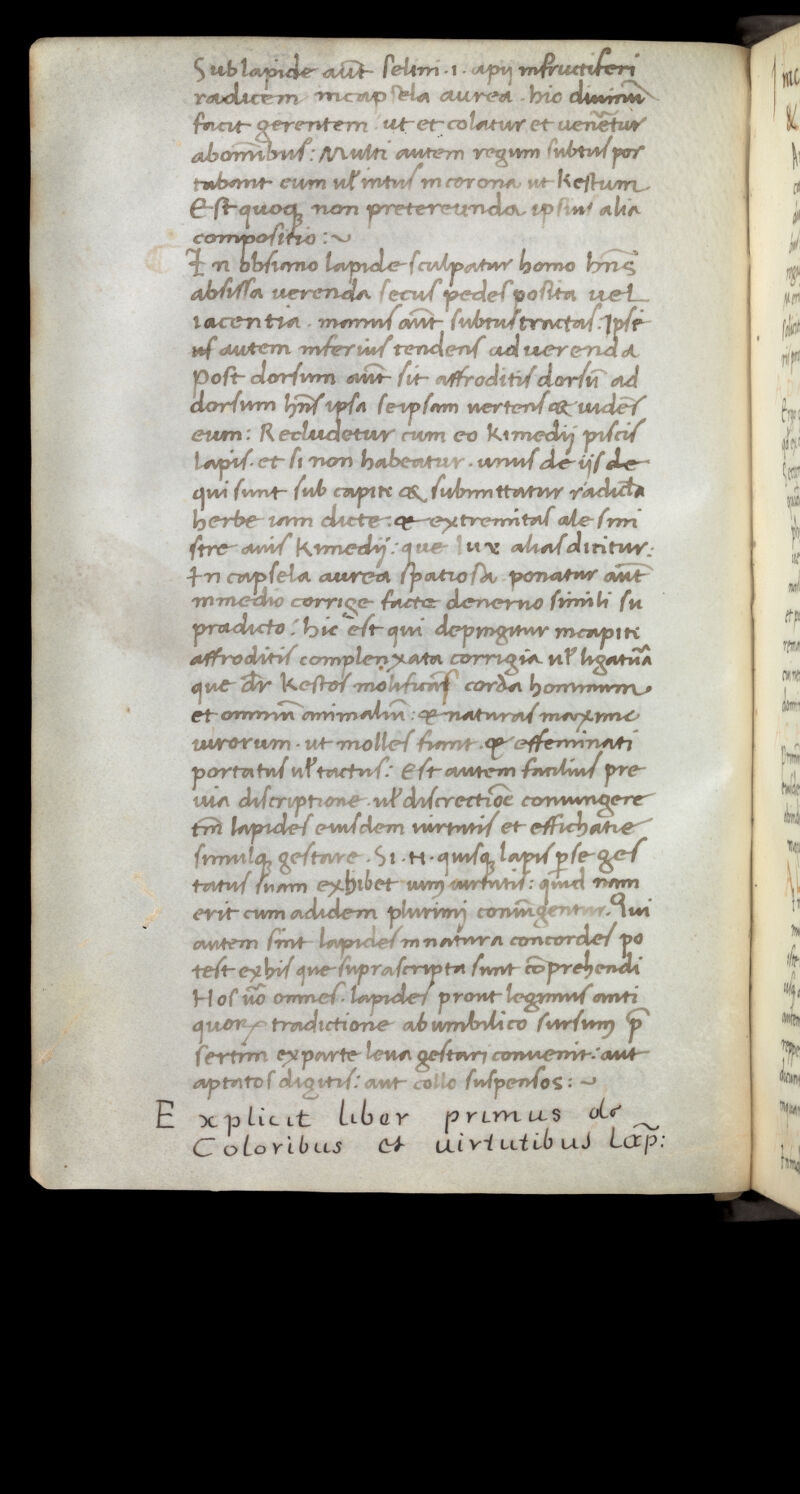 Sub lapide aūt selini .i. apij infructiferi
radicem incapsela aurea . hic diuinū
facit gerentem . ut et colatur et uenēt̄ur
abom̄ibus : Multi autem regum subtus por
tabant eum uł intus in corona ut Kestum
Est quoqꝫ non pretereunda ipsius alia
compositio :~
In obsiano lapide sculpatur homo hn̄s
absissa uerenda secus pedes posita uel
iacentia . manus aūt subtus tractas : Ipse
us autem inferius tendens ad uerenda
Post dorsum aūt sit affroditis dorsū ad
dorsum hn̄s ipsa seipsam uertens & uidēs
eum : Recludetur cum eo Kimedij piscis
lapis . et si non habeatur . unus de ijs de
qui sunt sub capite & submittatur radicl̄a
herbe iam dicte : & extremitas ale sini
stre auis Kimedij : que lux alias dicitur :
In capsela aurea spatiosa ponatur aūt
in medio corrige facte de neruo simili su
pradicto : hic est qui depingitur incapite
affroditis complenxata corrigia uł ligatūa
que dr̄ Kestos molificās corda hominum
et omniū animaliū : & naturas maxime
uirorum . ut molles fiant . & effeminati
portatus uł tactus : Est autem facilius pre
uia discriptione . uł discrectiōe coniungere
tm̄ lapides eiusdem uirtutis et effichatie
simulqꝫ gestare . Si . n . quisqꝫ lapis p̱se ges
tatus suam exhibet uim uirtutis : quid nam
erit cum adidem plurimi coniūgentur . Qui
autem sint lapides in natura concordes po
test ex his que suprascripta sunt cōprehendi
Hos ūo omnes . lapides prout legimus anti
quoꝝ tradictione ab umbilico sursum p̄
sertim exparte leua gestari conuenit : aut
aptatos digitis : aut collo suspensos :~
Explicit liber primus de
Coloribus et uirtutibus Lap̄ :